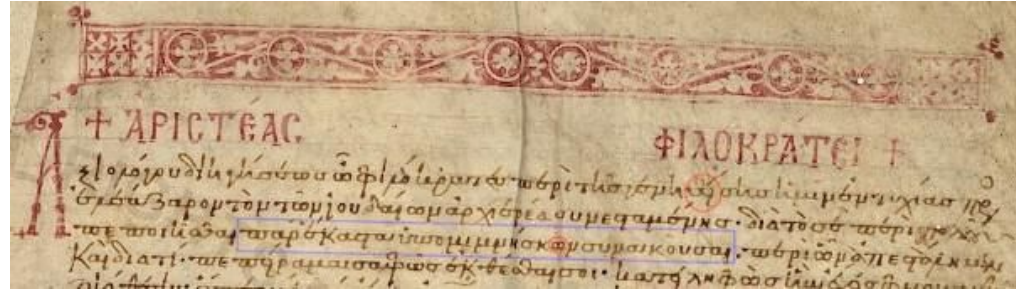 + ἈΡΙΣΤΈΑΣ ΦΙΛΟΚΡΆΤΕΙ +
Ἀξιολόγου διηγήσεως ὦ φιλόκρατες περὶ τῆς γενηθείσης ἡμῖν ἐντυχίας πρὸς
ἐλεάζαρον τὸν τῶν ἰουδαίων ἀρχιερέα συνεσταμένης· διὰ τὸ σὲ περὶ πολλοῦ
πεποιῆσθαι παρέκαστα ὑπομιμνήσκων συνακοῦσαι· περὶ ὧν ἀπεστάλημεν
Καὶ διατί· πεπείραμαι σαφῶς ἐκθέσθαι σοι· κατειληφὼς